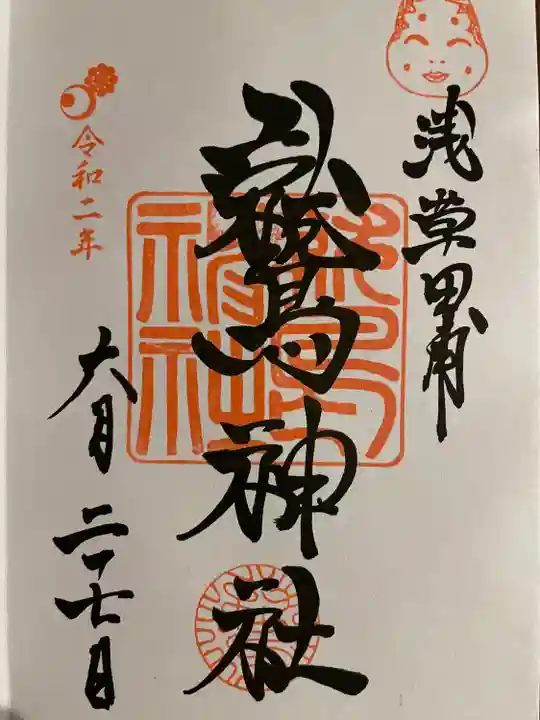 浅草田甫
鷲神社
令和二年
六月二十七日